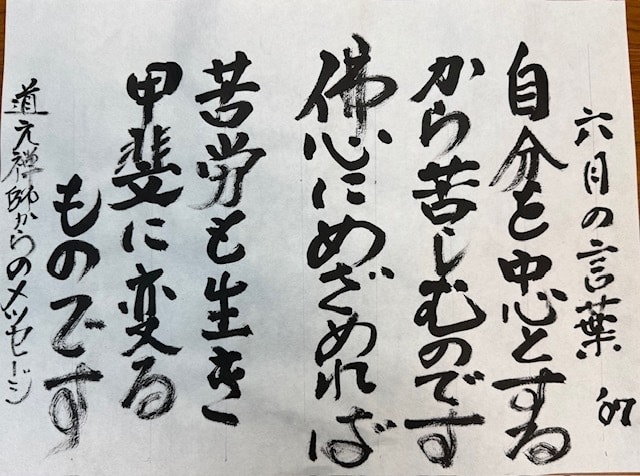 六月の言葉 '07
自分を中心とする
から苦しむのです
佛心にめざめれば
苦労も生き
甲斐に変る
ものです
道元禅師からのメッセージ